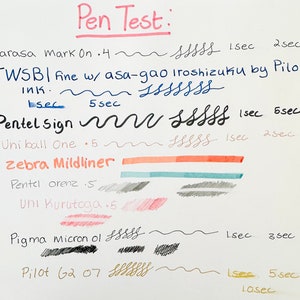 Pen Test:
arasa Mark On .4 1sec 2sec
TWSBI fine w/ asa-gao Iroshizuku by Pilo
ink. 1sec 5sec
Pentel Sign 1sec 5sec
Uni ball One .5 1sec 2sec
Zebra Mildliner
Pentel orenz .5
UNI Kurutoga .5
Pigma micron 01 1sec 3sec
Pilot G2 07 1sec 5sec
10sec